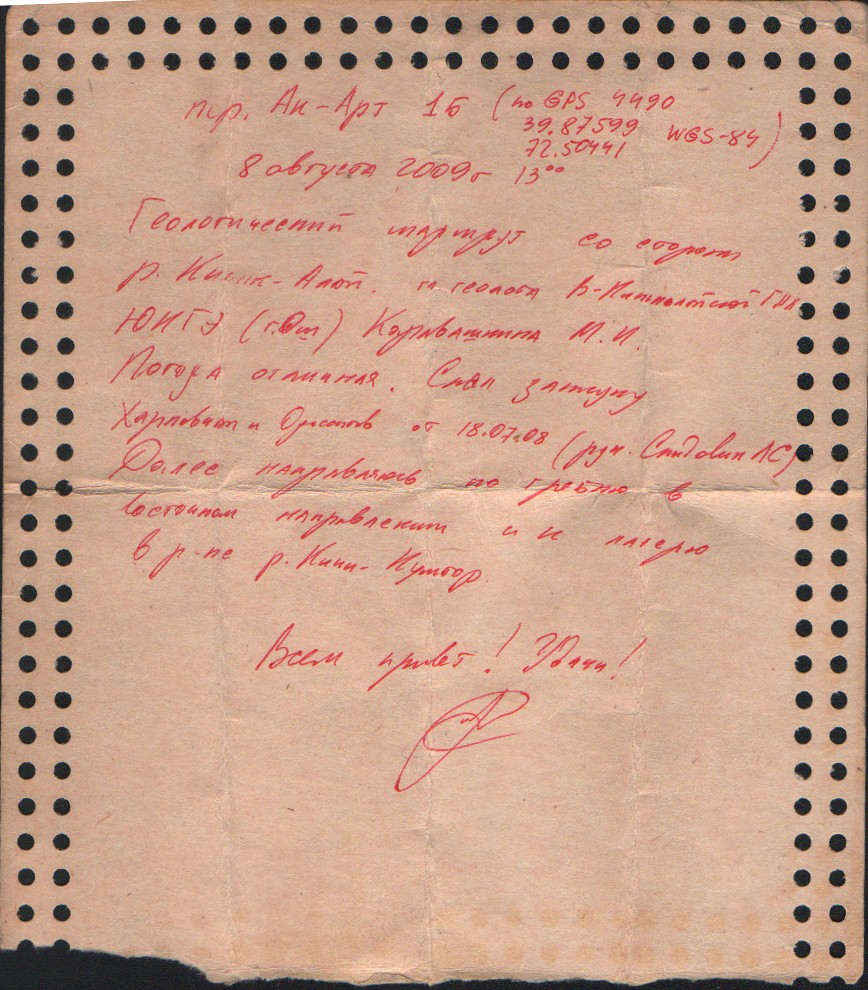 пер. Ак-Арт 1Б (по GPS 4490
39.87599 WGS-84)
72.50441
8 августа 2009г 13⁰⁰
Геологический маршрут со стороны
р. Кичик-Алай. гл. геолога
ЮКГЭ (г.Ош) Каравашкина М.И.
Погода отличная. Снял записку
от 18.07.08 (рук.
Далее направляюсь по гребню в
восточном направлении и к лагерю
в р-не р. Кичи-Кумтор.
Всем привет! Удачи!